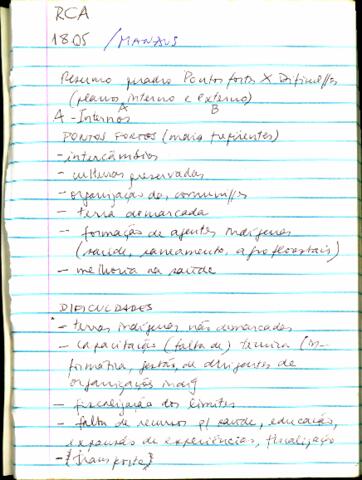 RCA
18.05 / MANAUS
Resumo quadro Pontos fortes X Dificulds
(planos interno e externo)
A B
A - Internos
PONTOS FORTES (mais frequentes)
- intercâmbios
- culturas preservadas
- organização das comunids
- terra demarcada
- formação de agentes indígenas
(saúde, saneamento, agroflorestais)
- melhoria na saúde
DIFICULDADES
- terras indígenas não demarcadas
- capacitação (falta de) técnica (in-
formática, gestão, de dirigentes de
organizações indíg
- fiscalização dos limites
- falta de recursos p/ saúde, educação,
expansão de experiências, fiscalização
- [transporte]